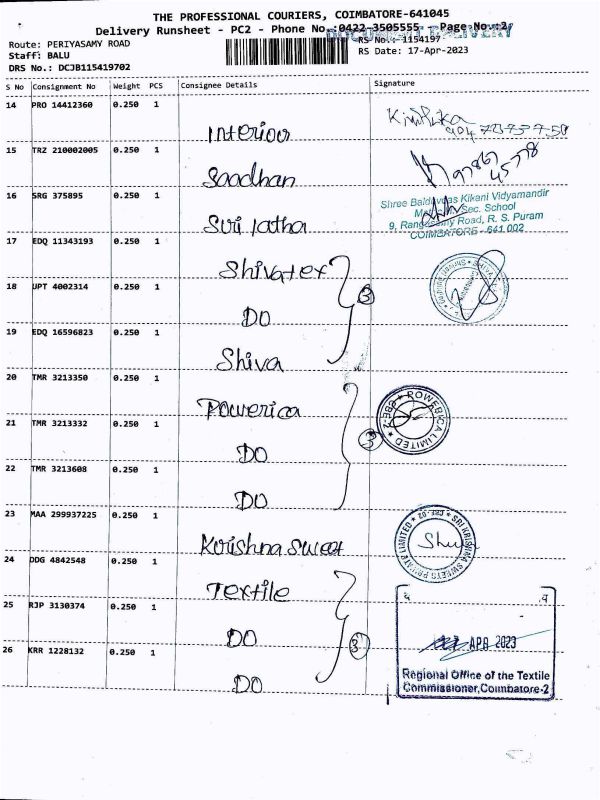 THE PROFESSIONAL COURIERS, COIMBATORE-641045
Delivery Runsheet - PC2 - Phone No.:0422-3505555. - Page No.:2/
DOCUMENT DELIVERY
Route: PERIYASAMY ROAD
RS No.: 1154197
Staff: BALU
RS Date: 17-Apr-2023
DRS No.: DCJB115419702
S No Consignment No Weight PCS Consignee Details Signature
14 PRO 14412360 0.250 1 Interior
15 TRZ 210002005 0.250 1 Saadhan
97867
45778
16 SRG 375895 0.250 1 Suri latha
Shree Baldevdas Kikani Vidyamandir
Sec. School
9, Rangasamy Road, R. S. Puram
COIMBATORE - 641 002
17 EDQ 11343193 0.250 1 Shivatex
18 UPT 4002314 0.250 1 DO
3
19 EDQ 16596823 0.250 1 Shiva
20 TMR 3213350 0.250 1 Powerica
POWERICA LIMITED ★ CBE-2 ★
21 TMR 3213332 0.250 1 DO
3
22 TMR 3213608 0.250 1 DO
23 MAA 299937225 0.250 1 Krishna sweet
SRI KRISHNA SWEETS PRIVATE LIMITED ★ CBE-02 ★
24 DDG 4842548 0.250 1 Textile
25 RJP 3130374 0.250 1 DO
3
26 KRR 1228132 0.250 1 DO
APR 2023
Regional Office of the Textile
Commissioner, Coimbatore-2